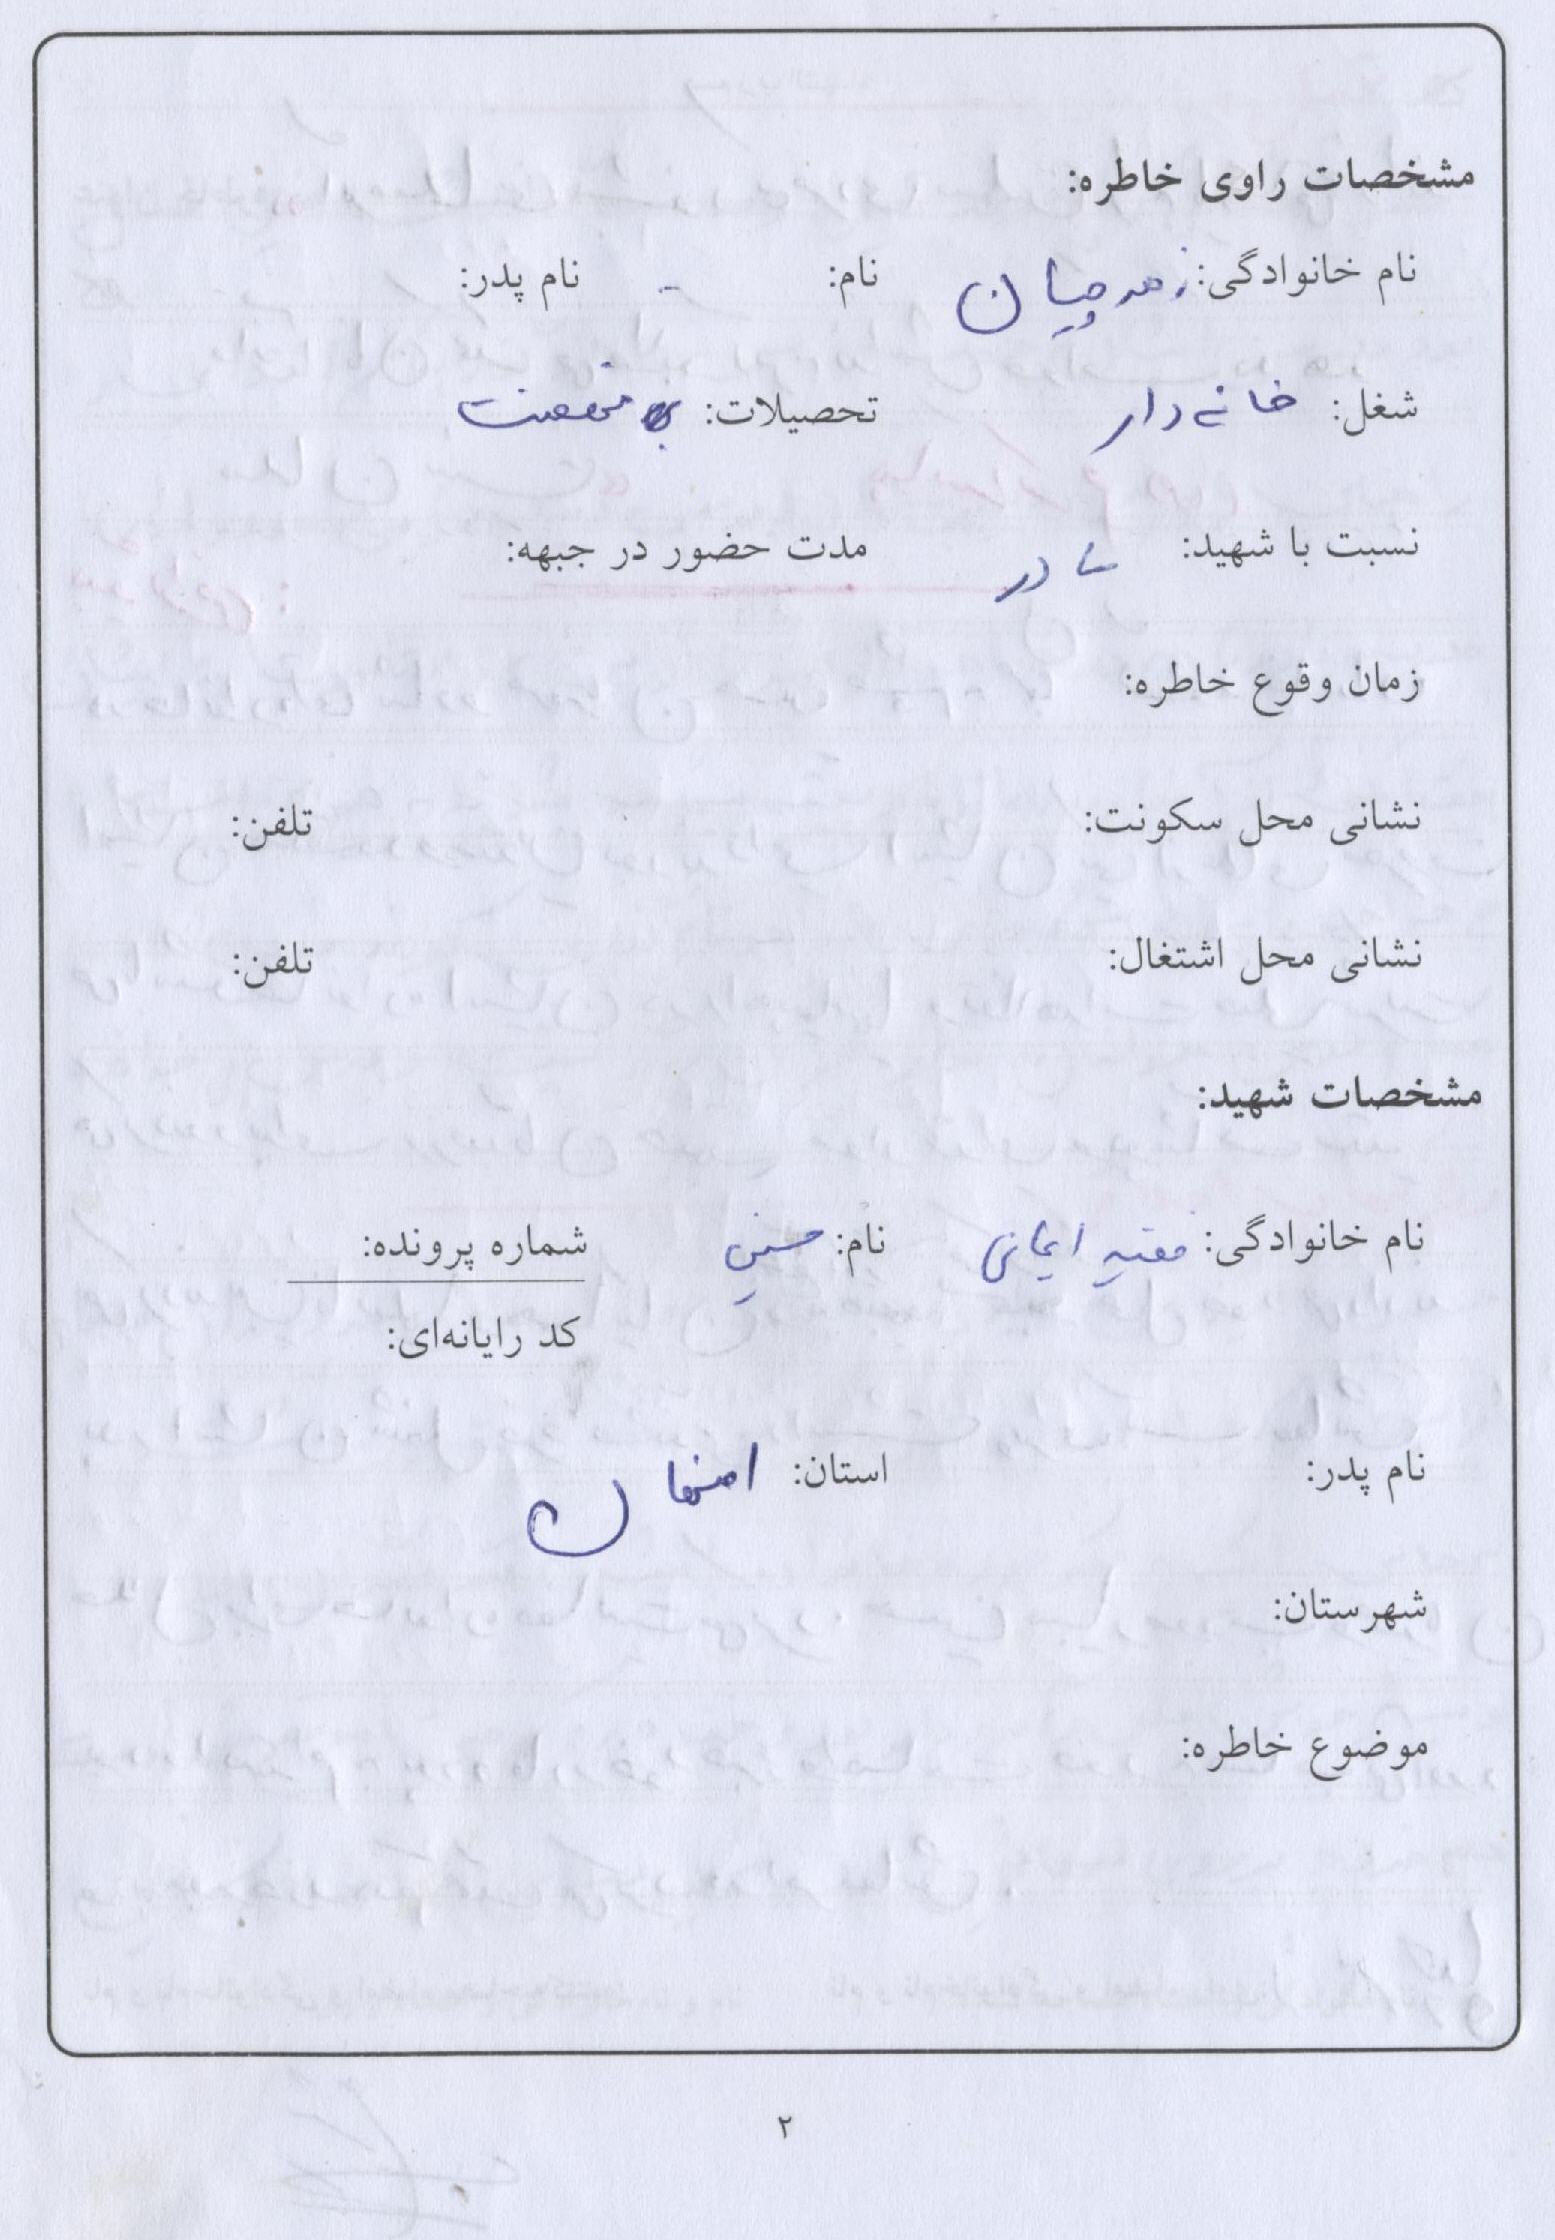 مشخصات راوی خاطره:
نام خانوادگی: نام: - نام پدر:
شغل: خانه دار تحصیلات: نهضت
نسبت با شهید: مادر مدت حضور در جبهه:
زمان وقوع خاطره:
نشانی محل سکونت: تلفن:
نشانی محل اشتغال: تلفن:
مشخصات شهید:
نام خانوادگی: فقیه ایمانی نام: حسین شماره پرونده:
کد رایانه‌ای:
نام پدر: استان: اصفهان
شهرستان:
موضوع خاطره:
۲